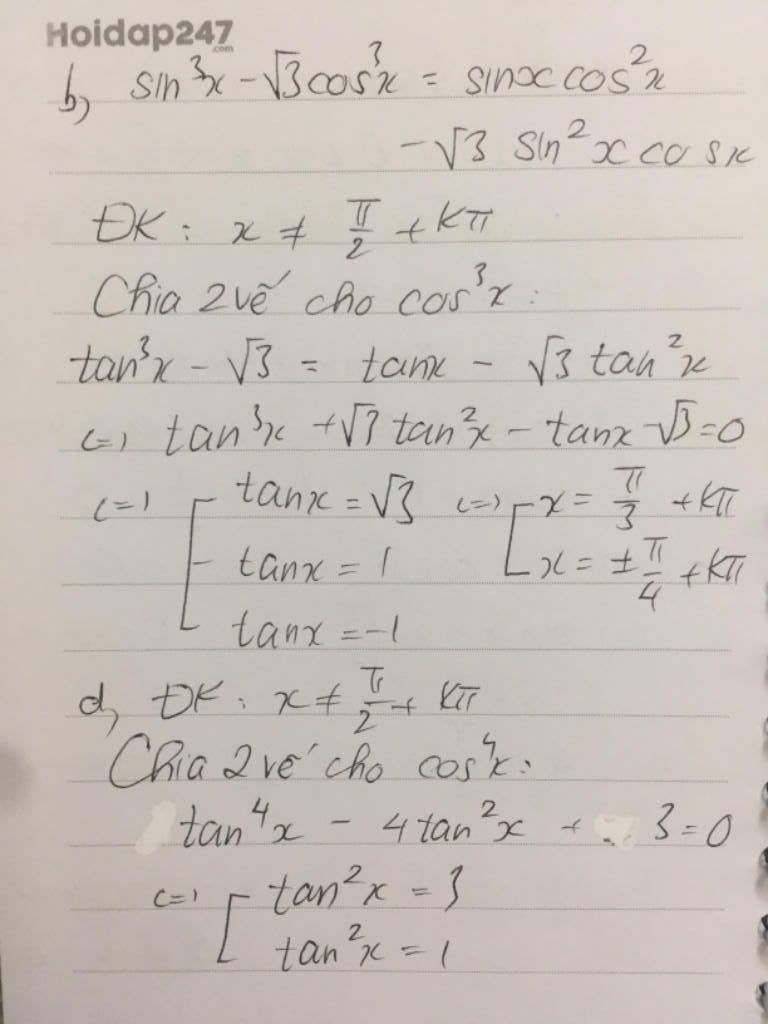 Hoidap247
.com
b, sin³x - √3cos³x = sinx cos²x
- √3 sin²x cosx
ĐK: x ≠ π/2 + kπ
Chia 2 vế cho cos³x:
tan³x - √3 = tanx - √3 tan²x
(=) tan³x + √3 tan²x - tanx - √3 = 0
(=) [ tanx = √3 (=) [ x = π/3 + kπ
tanx = 1 x = ± π/4 + kπ
tanx = -1
d, ĐK: x ≠ π/2 + kπ
Chia 2 vế cho cos⁴x:
tan⁴x - 4tan²x + 3 = 0
(=) [ tan²x = 3
tan²x = 1